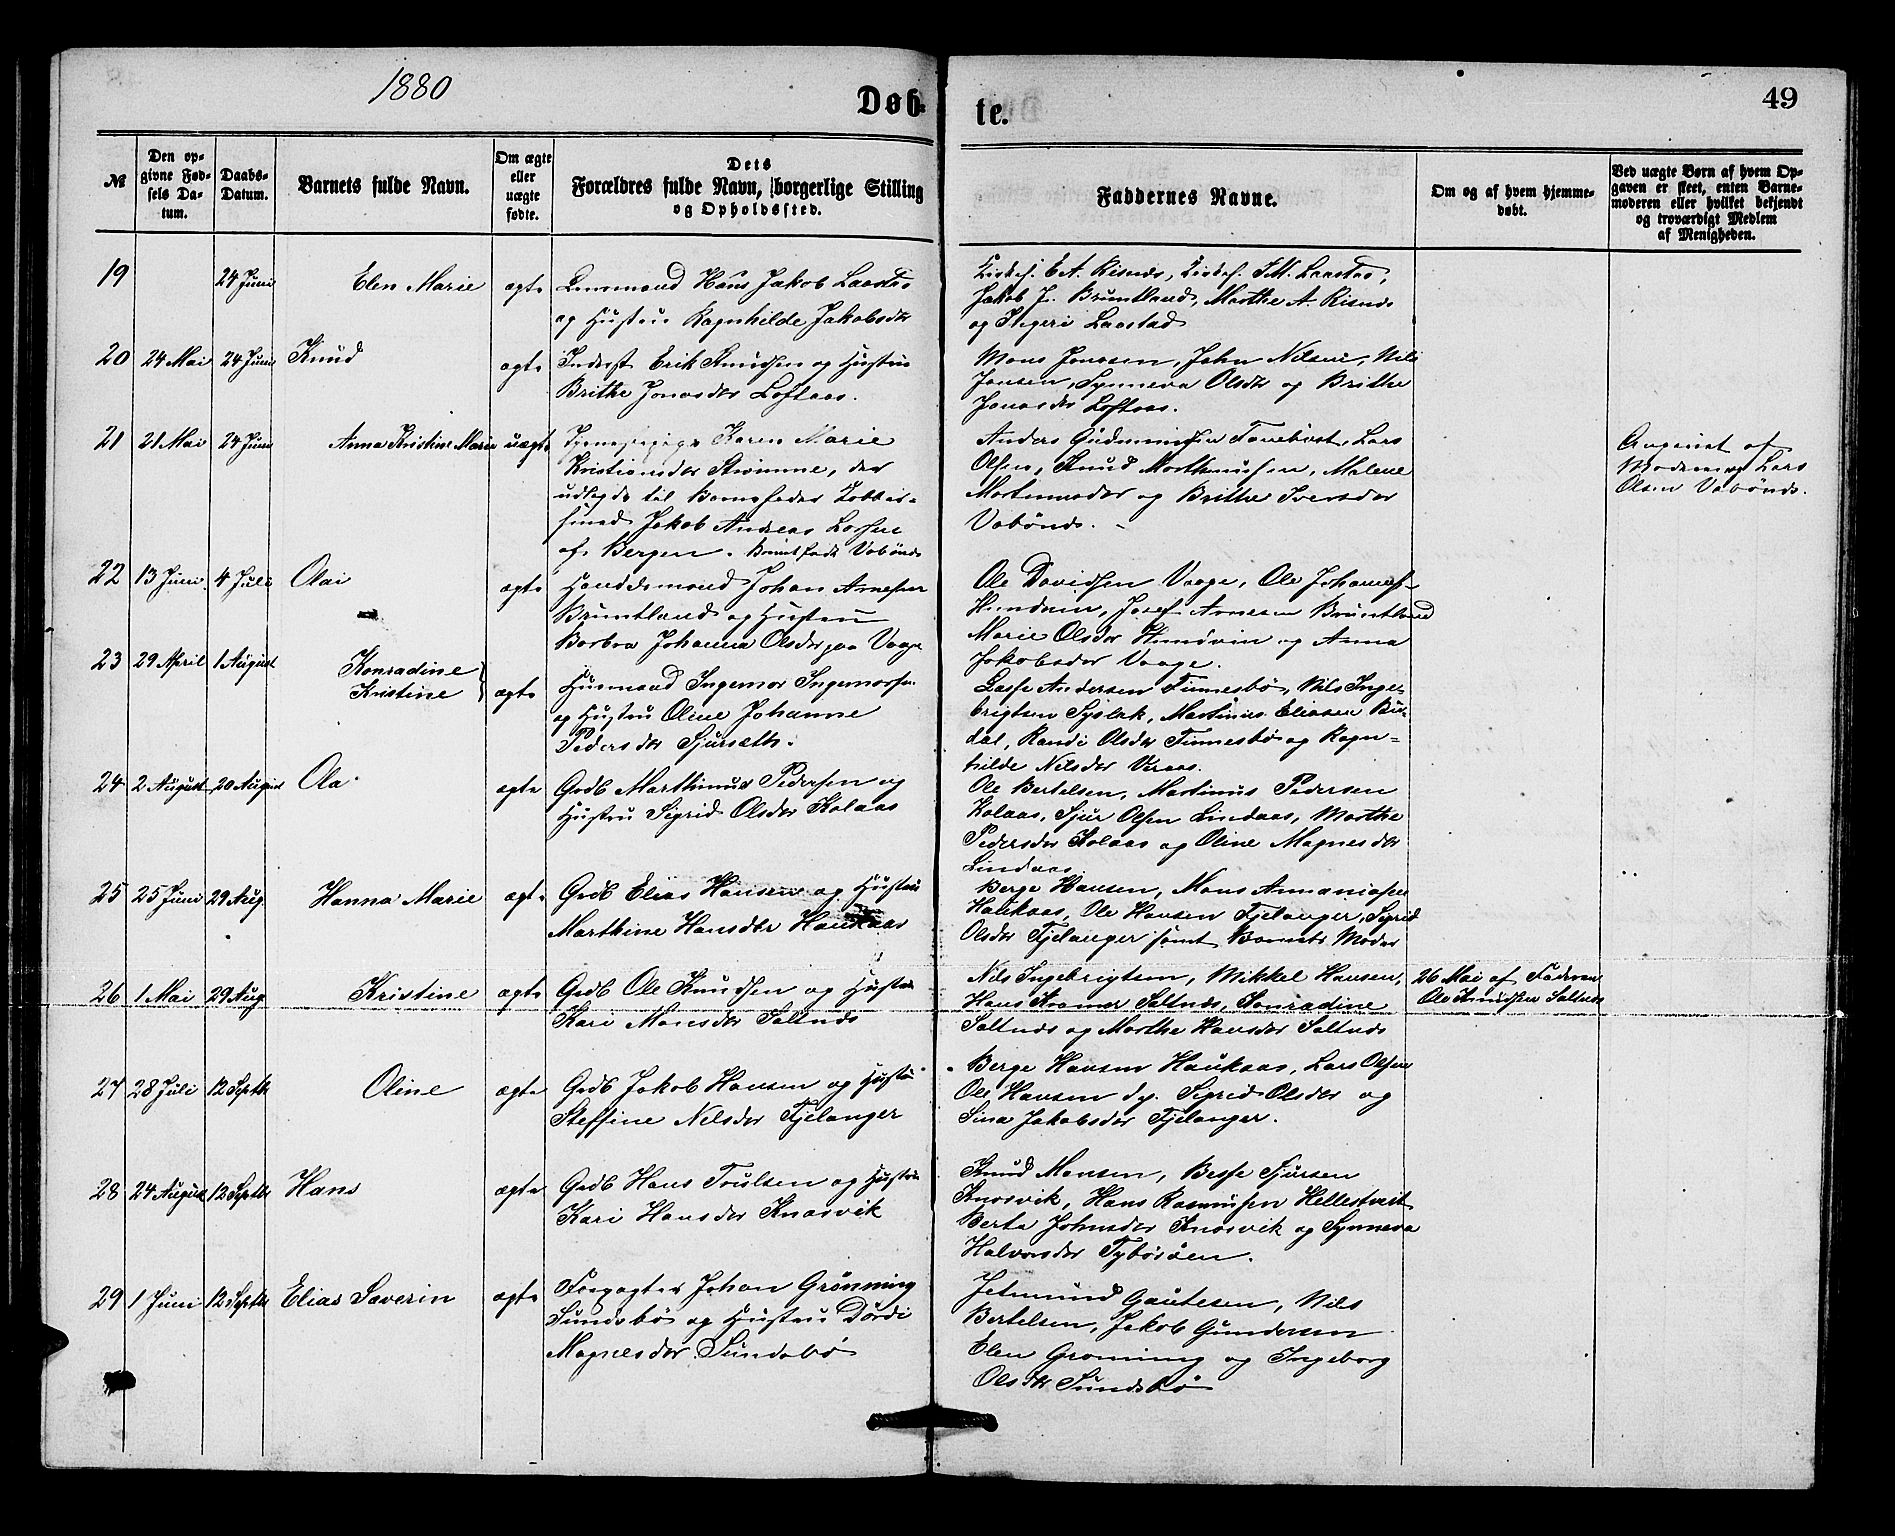 1880
Døb-
te.
49
№
Den op-
givne Fød-
sels Da-
tum.
Daabs-
Datum.
Barnets fulde Navn.
Om ægte
eller
uægte
fødte.
Dets
Forældres fulde Navn, borgerlige Stilling
og Opholdssted.
Faddernes Navne.
Om og af hvem hjemme-
døbt.
Ved uægte Børn af hvem Op-
gaven er skeet, enten Barne-
moderen eller hvilket bekjendt
og troværdigt Medlem
af Menigheden.
19 24 Juni Elen Marie ægte
Lensmand Hans Jakob Laastad
og Hustru Ragnhilde Jakobsdtr
E.A. Risnes, I.M. Laastad,
Jakob J. Bruntland, Marthe A. Risnes
og Ingeri Laastad
20 24 Mai 24 Juni Knud ægte
Inderst Erik Knudsen og Hustru
Brithe Jonasdtr Loftaas.
Mons Jonasen, John Nilsen, Nils
Jonsen, Synneva Olsdtr og Brithe
Jonasdtr Loftaas.
21 21 Mai 24 Juni Anna Kristine Marie uægte
Karen Marie
Kristiansdtr Strømme, der
udlægde til Barnefader
Jakob Andreas Larsen
af Bergen.
Anders Gudmundsen Tonebost, Lars
Olsen, Knud Marthinussen, Malene
Martinusdtr og Brithe Iversdtr
Vabønd.
Angivet af
Moderen og Lars
Olsen Vabønd.
22 13 Juni 4 Juli Olai ægte
Handelsmand Johan Arnesen
Bruntland og Hustru
Barbra Johanna Olsdtr paa Vaage
Ole Davidsen Vaage, Ole Johannes
Hundvin, Josef Arnesen Bruntland
Marie Olsdtr Hundvin og Anna
Jakobsdtr Vaage.
23 29 April 1 August Konradine
Kristine ægte
Husmand Ingemor Ingemorsen
og Hustru Oline Johanne
Pedersdtr Sjursæth.
Lasse Andersen Finnesbø, Nils Inge-
brigtsen Syslak, Martinus Eliasen Bir-
dal, Randi Olsdtr Finnesbø og Ragn-
hilde Nilsdtr Veraas.
24 2 August 20 August Ola ægte
Grdb Marthinus Pedersen og
Hustru Sigrid Olsdtr Kolaas
Ole Bertelsen, Martinus Pedersen
Kolaas, Sjur Olsen Lindaas, Marthe
Pedersdtr Kolaas og Oline Magnesdtr
Lindaas.
25 25 Juni 29 Aug Hanna Marie ægte
Grdb Elias Hansen og Hustru
Marthine Hansdtr Haukaas
Berge Hansen, Mons Annaniasen
Haukaas, Ole Hansen Fjelanger, Sigrid
Olsdtr Fjelanger samt Barnets Moder
26 1 Mai 29 Aug Kristine ægte
Grdb Ole Knudsen og Hustru
Kari Monsdtr Saltnes
Nils Ingebrigtsen, Mikkel Hansen,
Hans Kramer Saltnes, Konradine
Saltnes og Marthe Hansdtr Saltnes
26 Mai af Faderen
Ole Knudsen Saltnes
27 28 Juli 12 Septbr Oline ægte
Grdb Jakob Hansen og Hustru
Steffine Nilsdtr Fjelanger
Berge Hansen Haukaas, Lars Olsen
Ole Hansen dy. Sigrid Olsdtr og
Sina Jakobsdtr Fjelanger.
28 24 August 12 Septbr Hans ægte
Grdb Hans Poulsen og Hustru
Kari Hansdtr Knarvik
Knud Monsen, Besse Sjursen
Knarvik, Hans Rasmussen Hellestveit
Berta Johnsdtr Knarvik og Synneva
Halvorsdtr Tybøröen.
29 1 Juni 12 Septbr Elias Severin ægte
Forpagter Johan Grønning
Sundsbø og Hustru Dordi
Magnesdtr Sundsbø
Jetmund Gautesen, Nils
Bertelsen, Jakob Gundersen
Elen Groning og Ingeborg
Olsdtr Sundsbø